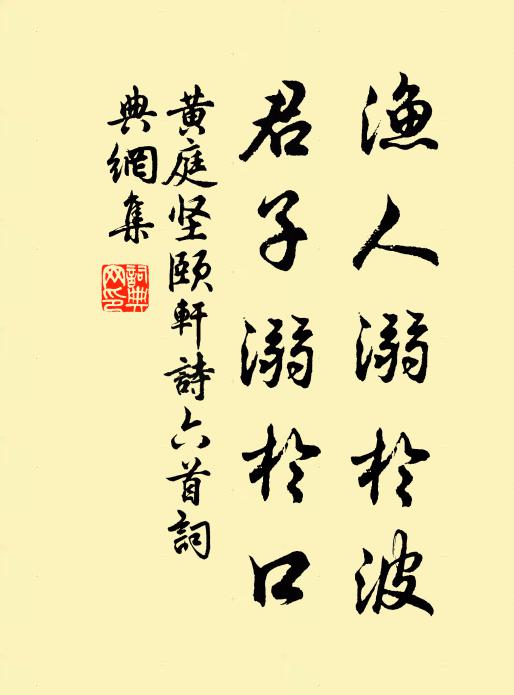 渔人溺於波
君子溺於口
黄庭坚颐軒詩六首詞
典網集
詞典网印